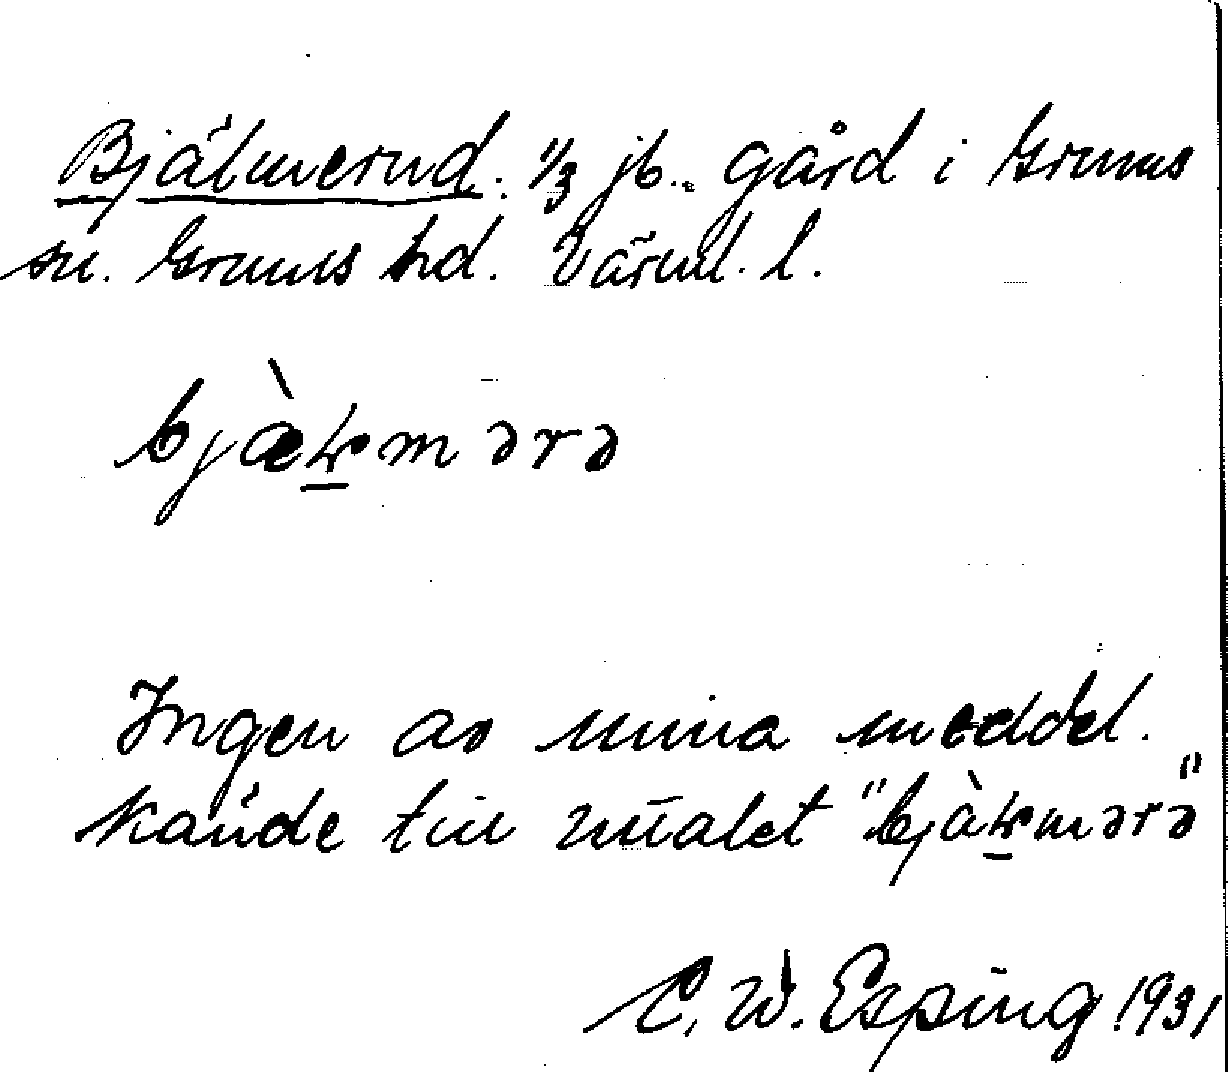 Bjälmerud. 1/3 jb. gård i Grums
sn. Grums hd. Värml. l.
bjæ̀ɽmərə
Ingen av mina meddel.
kände till uttalet "bjàɽmərə"
C. W. Esping 1931